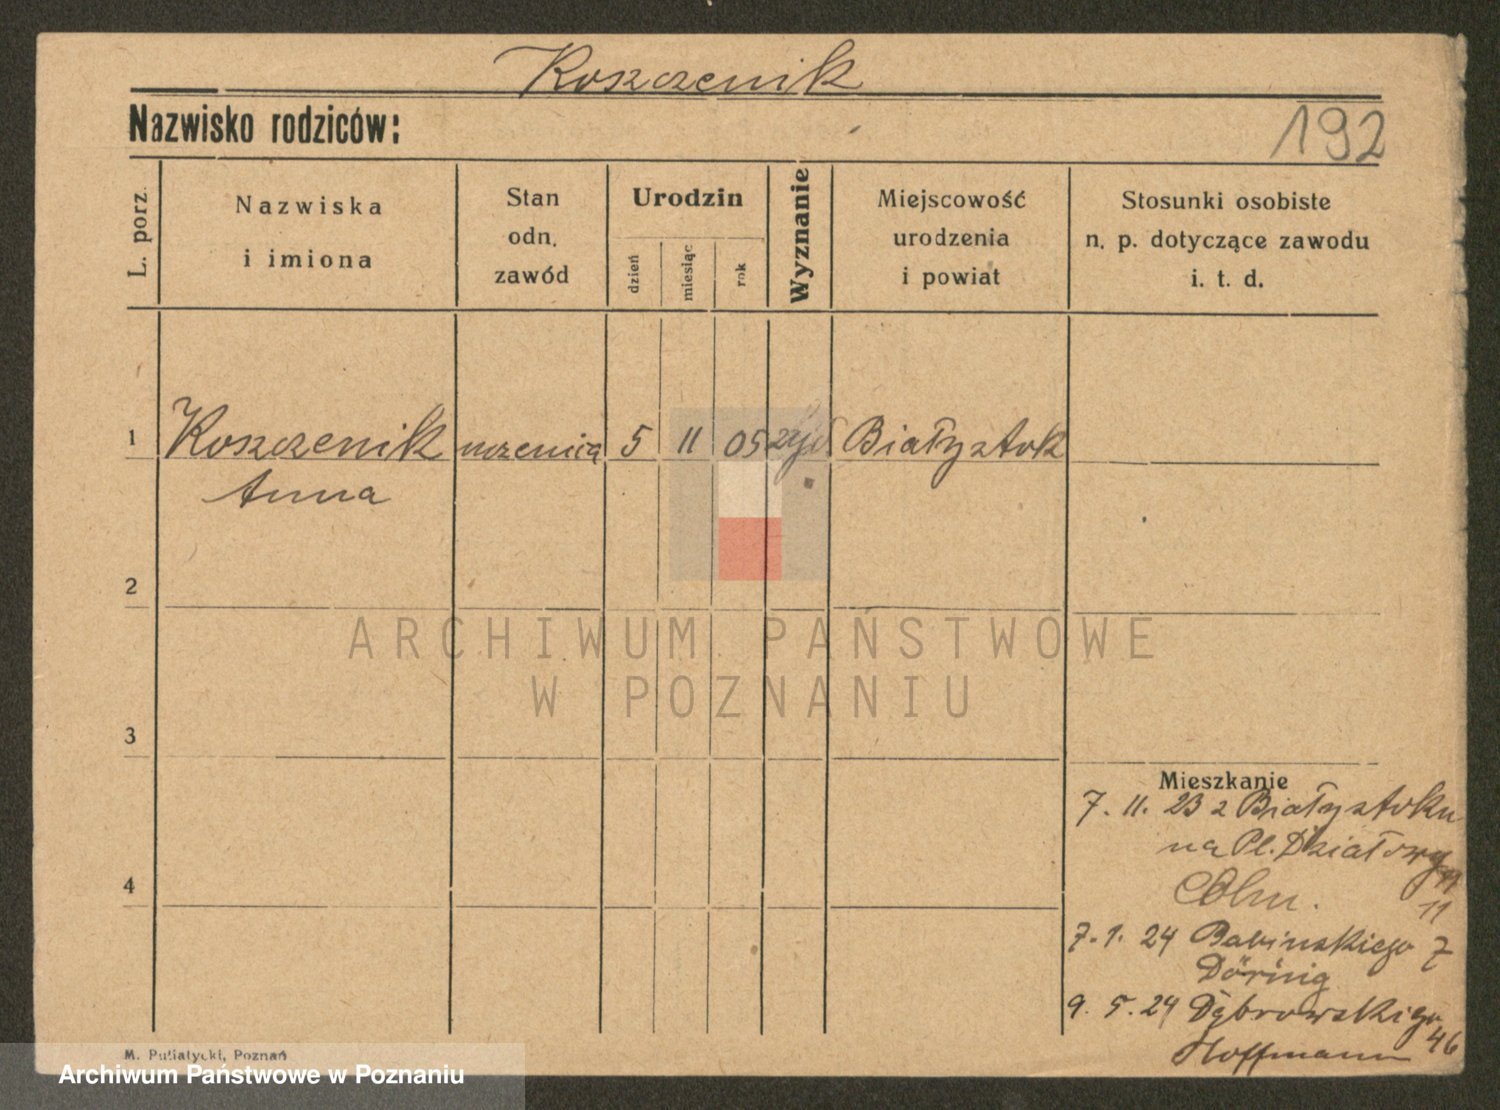 Koszczenik
Nazwisko rodziców:
192
L. porz.
Nazwiska
i imiona
Stan
odn.
zawód
Urodzin
dzień
miesiąc
rok
Wyznanie
Miejscowość
urodzenia
i powiat
Stosunki osobiste
n. p. dotyczące zawodu
i. t. d.
1 Koszczenik uczenica 5 11 05 żyd Białystok
Anna
2
ARCHIWUM PAŃSTWOWE
W POZNANIU
3
Mieszkanie
7. 11. 23 z Białystoku
na Pl. Działowy
11
4
7. 1. 24 Babinskiego 7
Döring
9. 5. 24 Dąbrowskiego
46
Hoffmann
M. Putiatycki, Poznań
Archiwum Państwowe w Poznaniu